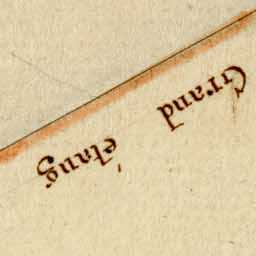 Grand étang